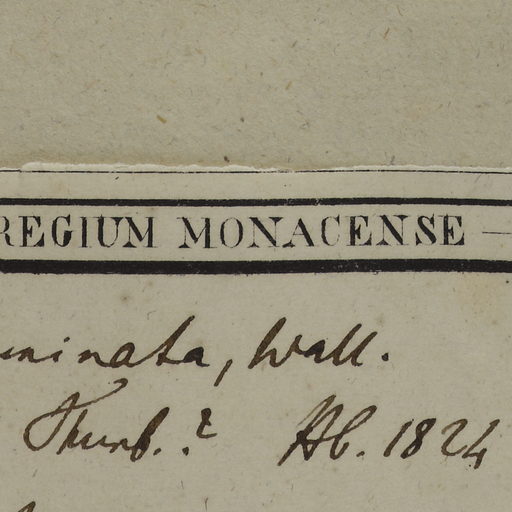 REGIUM MONACENSE —
minata, Wall.
Thunb.? Hb. 1824